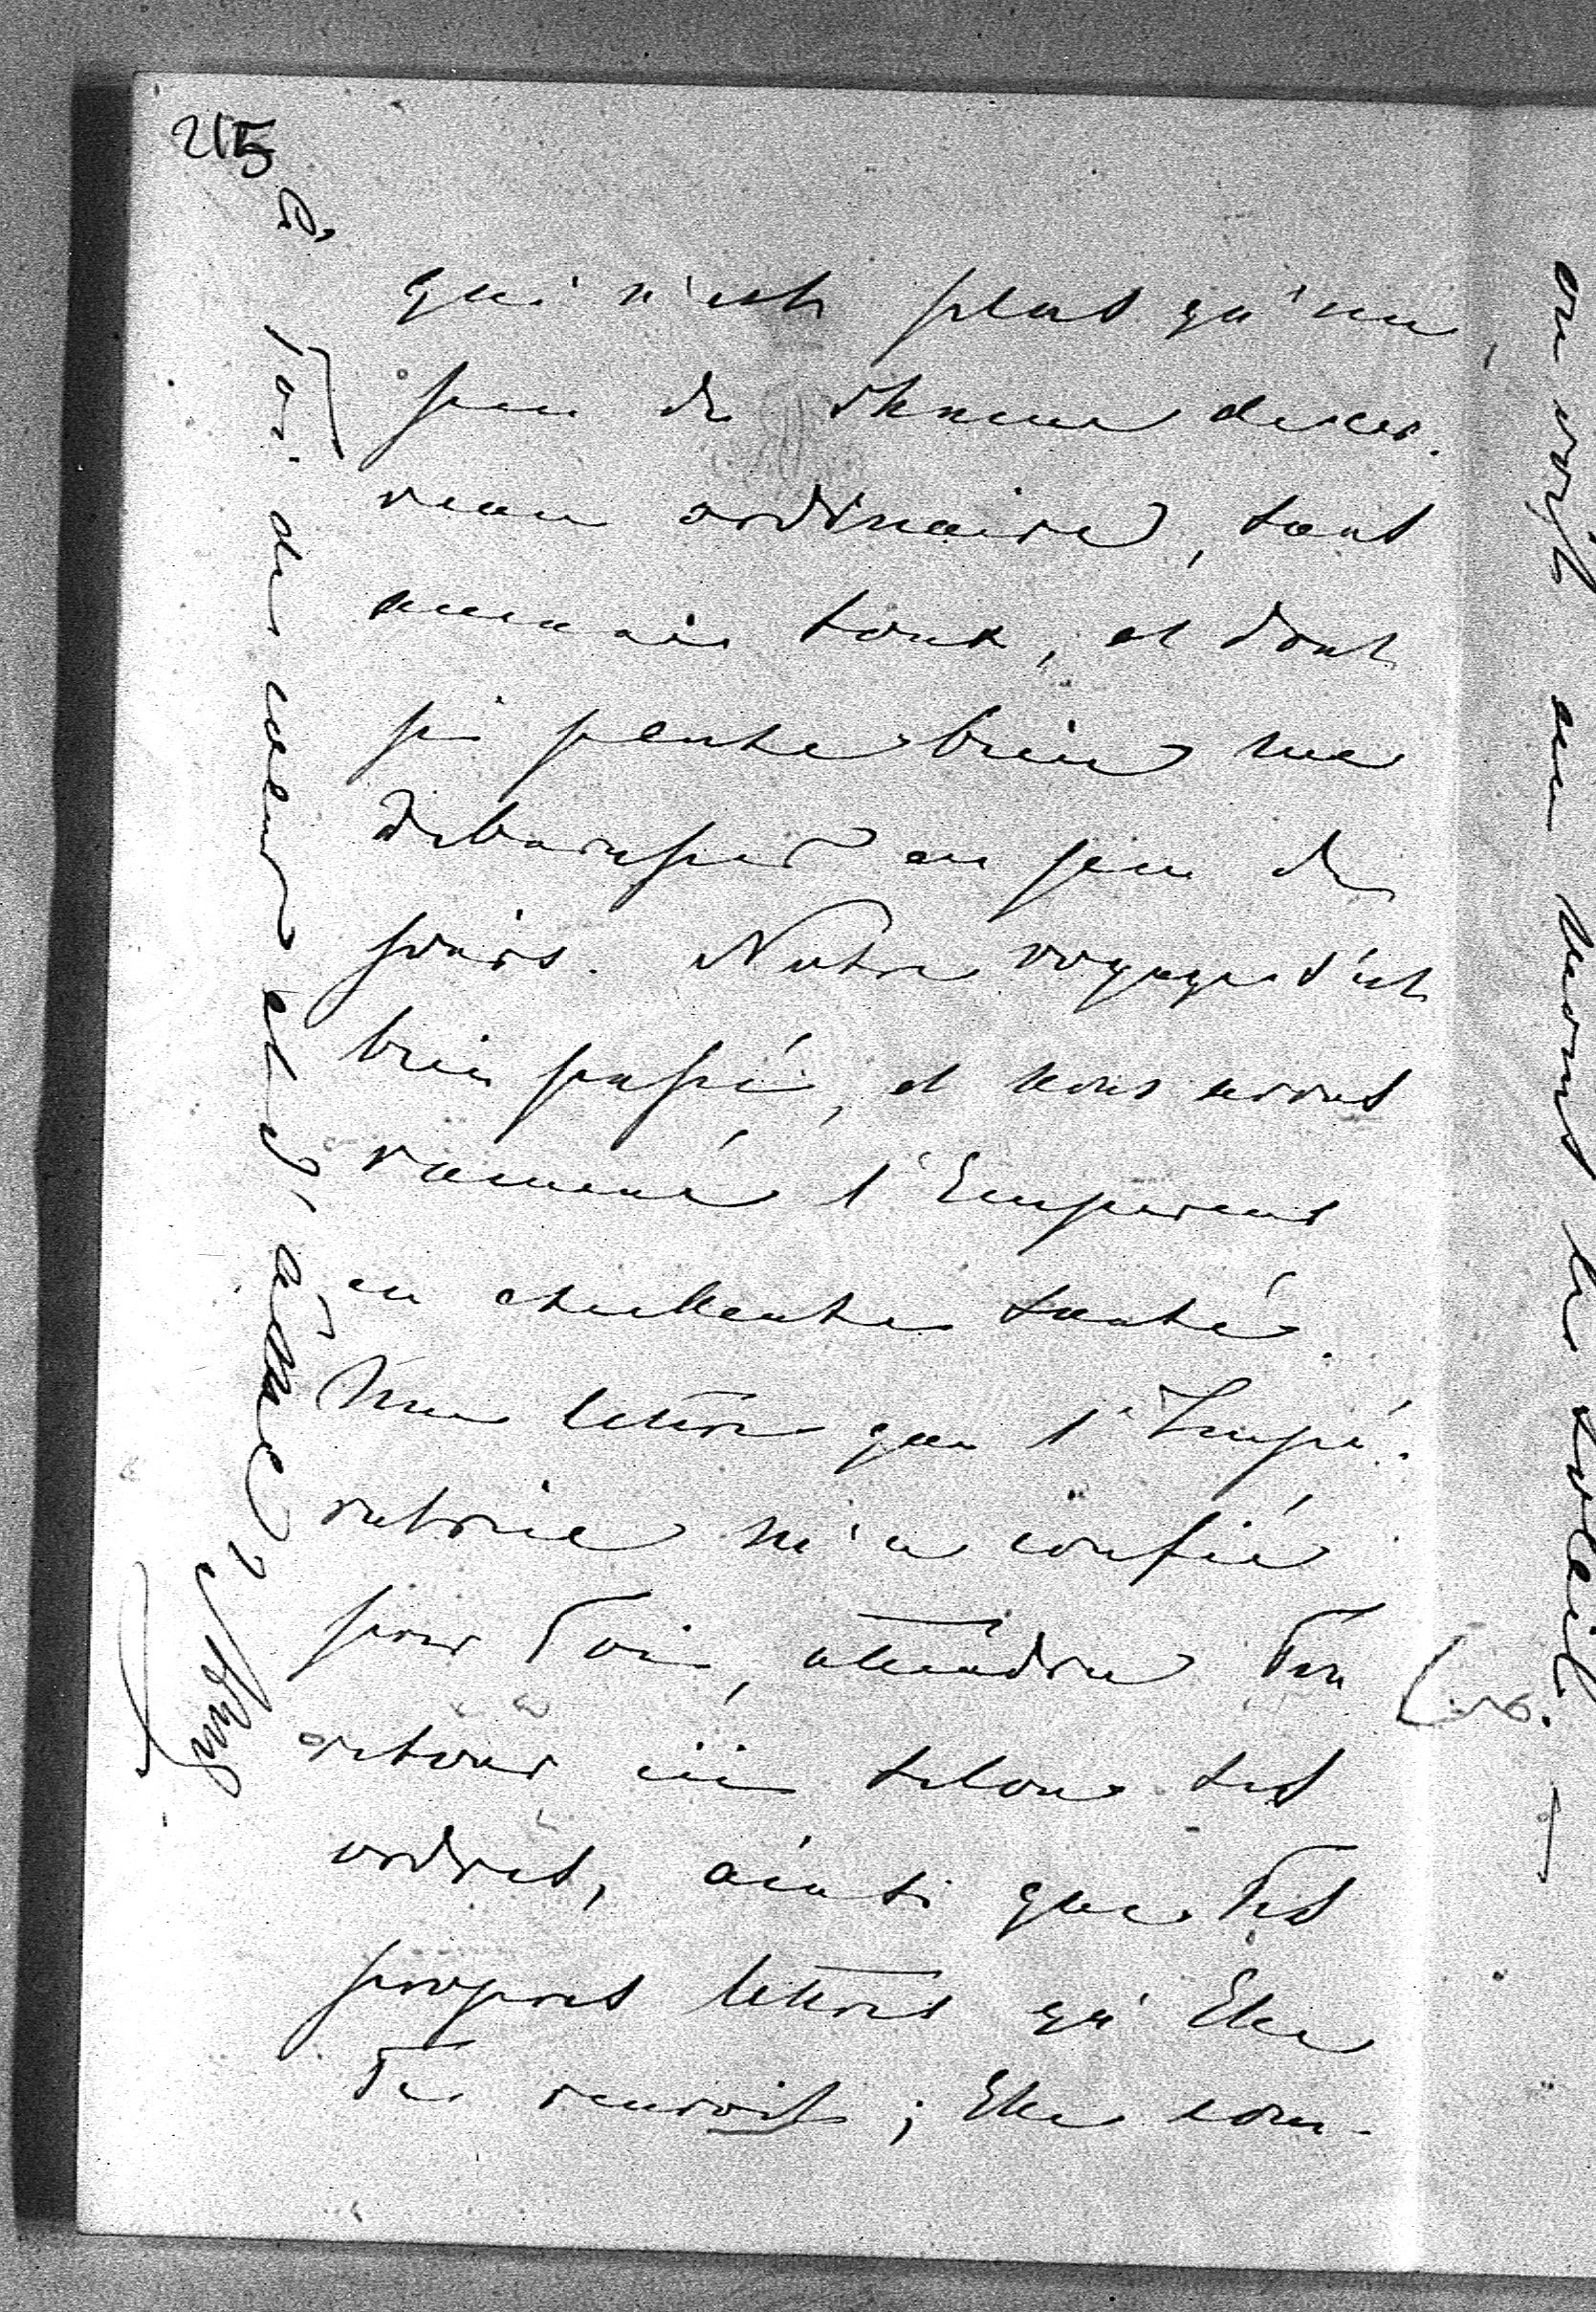 215
qui n'est plus qu'un
peu de rhume de cer-
veau ordinaire, sans
aucune toux, et dont
je pense bien me
débarasser en peu de
jours. Notre voyage s'est
bien passé, et nous avons
ramené l'Empereur
en excellente santé.
Une lettre que l'Impé-
ratrice m'a confiée
pour Toi, attendra Ton
retour ici selon tes
ordres, ainsi que Tes
propres lettres qu'Elle
Te renvoit; Elle com-
à
Toi de coeur et d'âme
on voit au moins le soleil. —